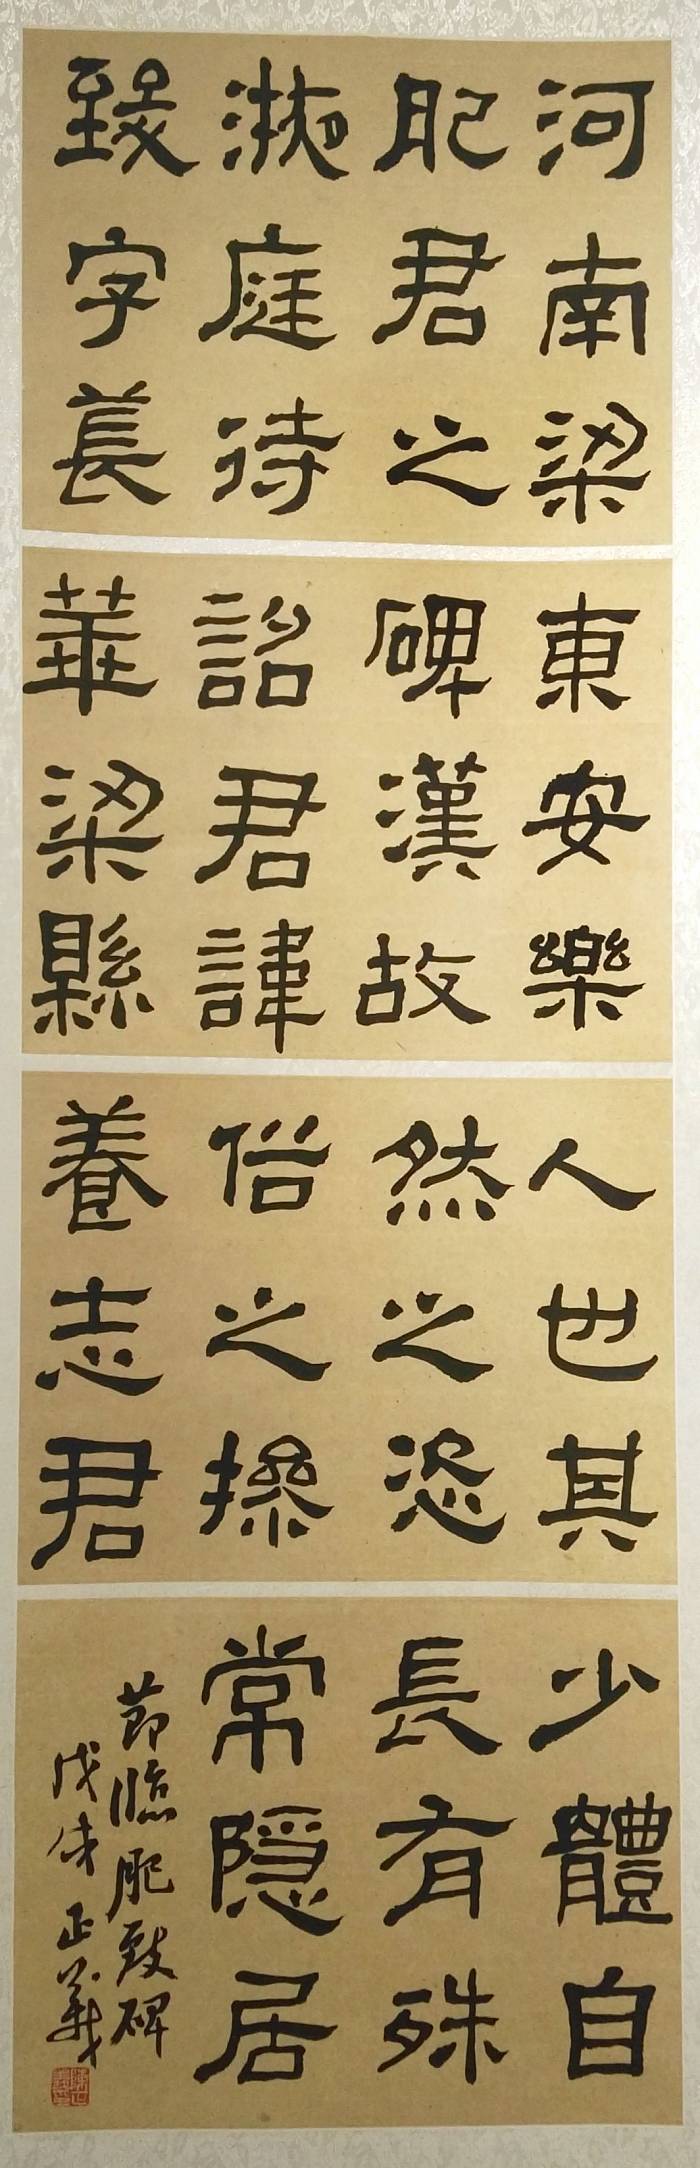 河南梁東安樂
肥君之碑漢故
掖庭待詔君諱
致字萇華梁縣
人也其少體自
然之恣長有殊
俗之操常隱居
養志君
節臨肥致碑
戊戌正義